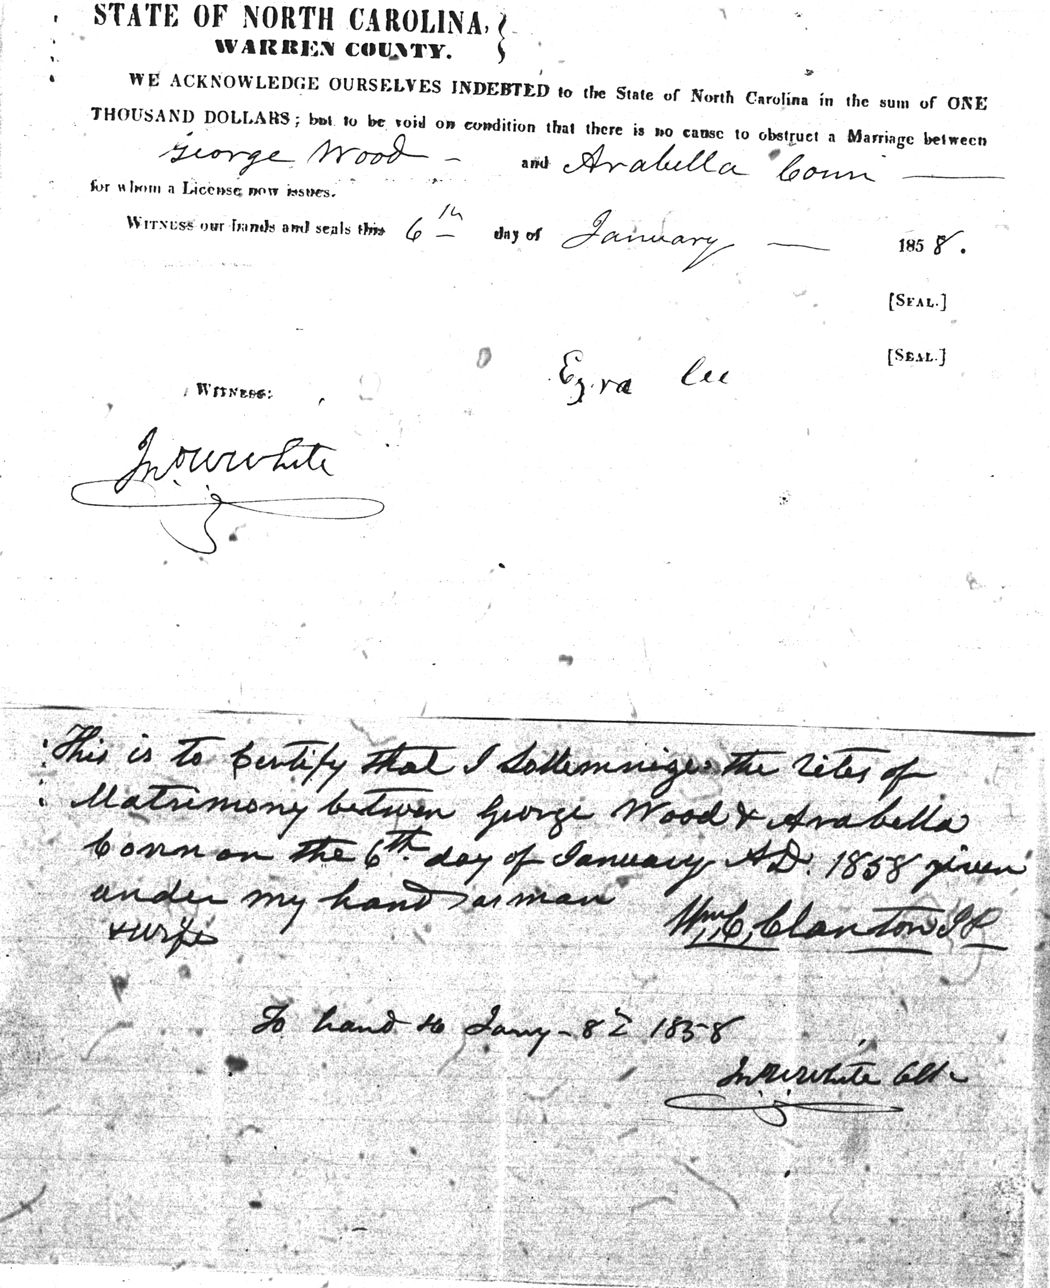 STATE OF NORTH CAROLINA,
WARREN COUNTY.
WE ACKNOWLEDGE OURSELVES INDEBTED to the State of North Carolina in the sum of ONE
THOUSAND DOLLARS; but to be void on condition that there is no cause to obstruct a Marriage between
George Wood – and Arabella Conn —
for whom a License now issues.
WITNESS our hands and seals this 6th day of January — 1858.
[SEAL.]
Ezra Lee [SEAL.]
WITNESS:
Jno W White
This is to Certify that I Sollemnize the rites of
Matrimony betwen George Wood & Arabella
Conn on the 6th day of January AD. 1858 given
under my hand as man
& wife
Wm C, Clanton JP
To hand Jany - 8 1858
Jno W White Clk